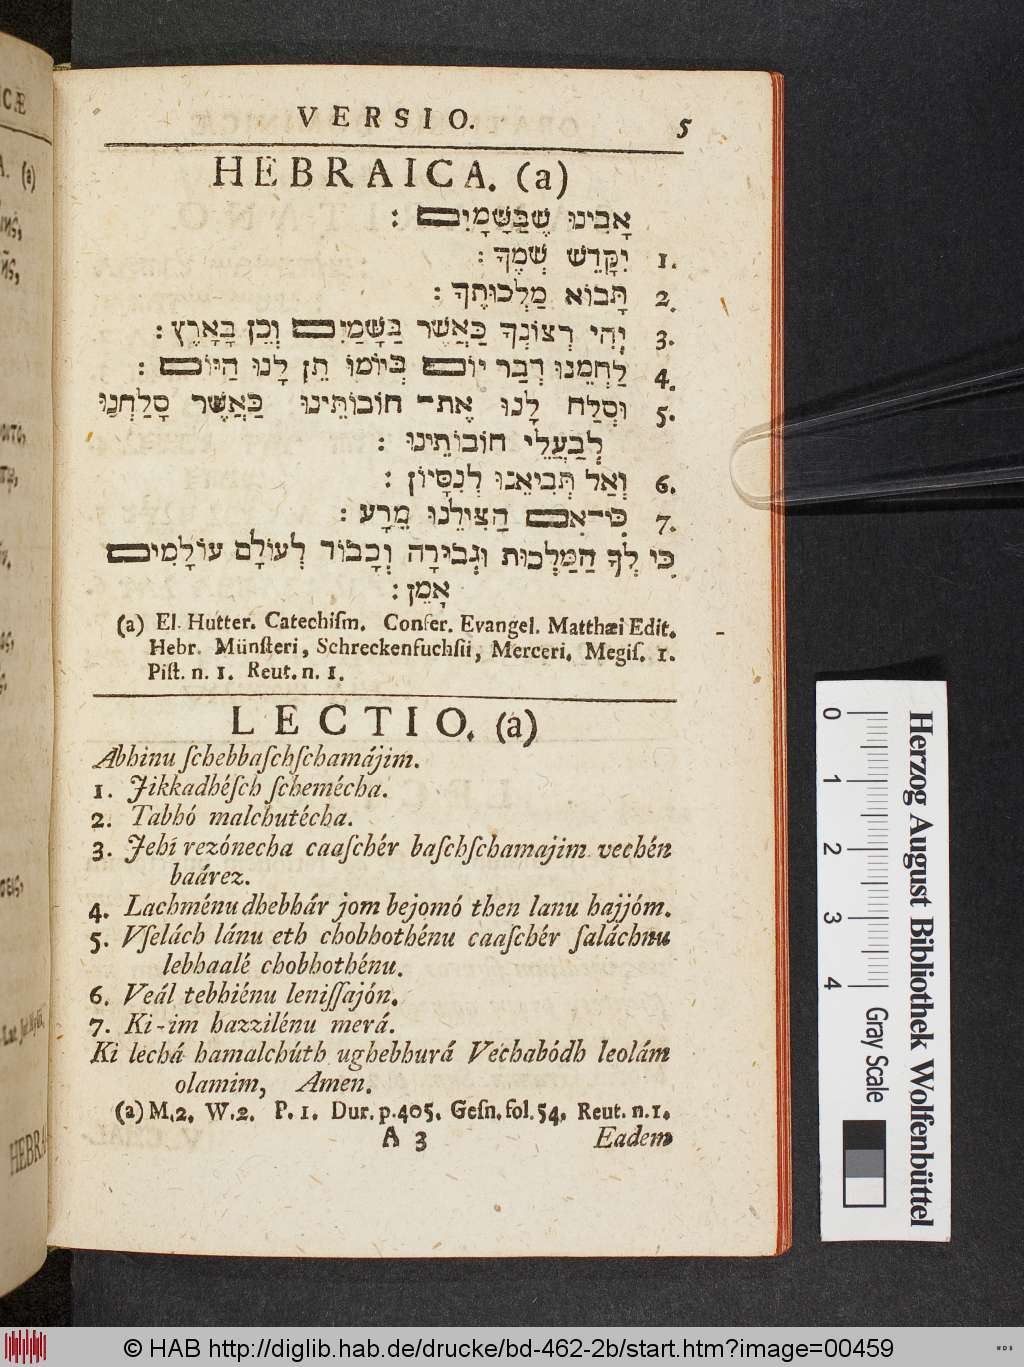 VERSIO. 5
HEBRAICA. (a)
אָבִינוּ שֶׁבַּשָּׁמָיִם :
1. יִקָּדֵשׁ שְׁמֶךָ :
2. תָּבוֹא מַלְכוּתֶךָ :
3. יְהִי רְצוֹנְךָ כַּאֲשֶׁר בַּשָּׁמַיִם וְכֵן בָּאָרֶץ :
4. לַחְמֵנוּ דְבַר יוֹם בְּיוֹמוֹ תֵן לָנוּ הַיּוֹם :
5. וּסְלַח לָנוּ אֶת־ חוֹבוֹתֵינוּ כַּאֲשֶׁר סָלַחְנוּ
לְבַעֲלֵי חוֹבוֹתֵינוּ :
6. וְאַל תְּבִיאֵנוּ לְנִסָּיוֹן :
7. כִּי־אִם הַצִּילֵנוּ מֵרָע :
כִּי לְךָ הַמַּלְכוּת וּגְבִירָה וְכָבוֹד לְעוֹלָם עוֹלָמִים
אָמֵן :
(a) El. Hutter. Catechiſm. Confer. Evangel. Matthæi Edit.
Hebr. Münſteri, Schreckenfuchſii, Merceri. Megiſ. 1.
Piſt. n. 1. Reut. n. 1.
LECTIO. (a)
Abhinu ſchebbaſchſchamájim.
1. Jikkadhéſch ſchemécha.
2. Tabhó malchutécha.
3. Jehí rezónecha caaſchér baſchſchamajim vechén
baárez.
4. Lachménu dhebhár jom bejomó then lanu hajjóm.
5. Vſelách lánu eth chobhothénu caaſchér ſaláchnu
lebhaalé chobhothénu.
6. Veál tebhiénu leniſſajón.
7. Ki-im hazzilénu merá.
Ki lechá hamalchúth ughebhurá Vechabódh leolám
olamim, Amen.
(a) M.2. W.2. P. 1. Dur. p.405. Geſn. fol. 54. Reut. n.1.
A 3 Eadem
Herzog August Bibliothek Wolfenbüttel
0 1 2 3 4 Gray Scale
© HAB http://diglib.hab.de/drucke/bd-462-2b/start.htm?image=00459